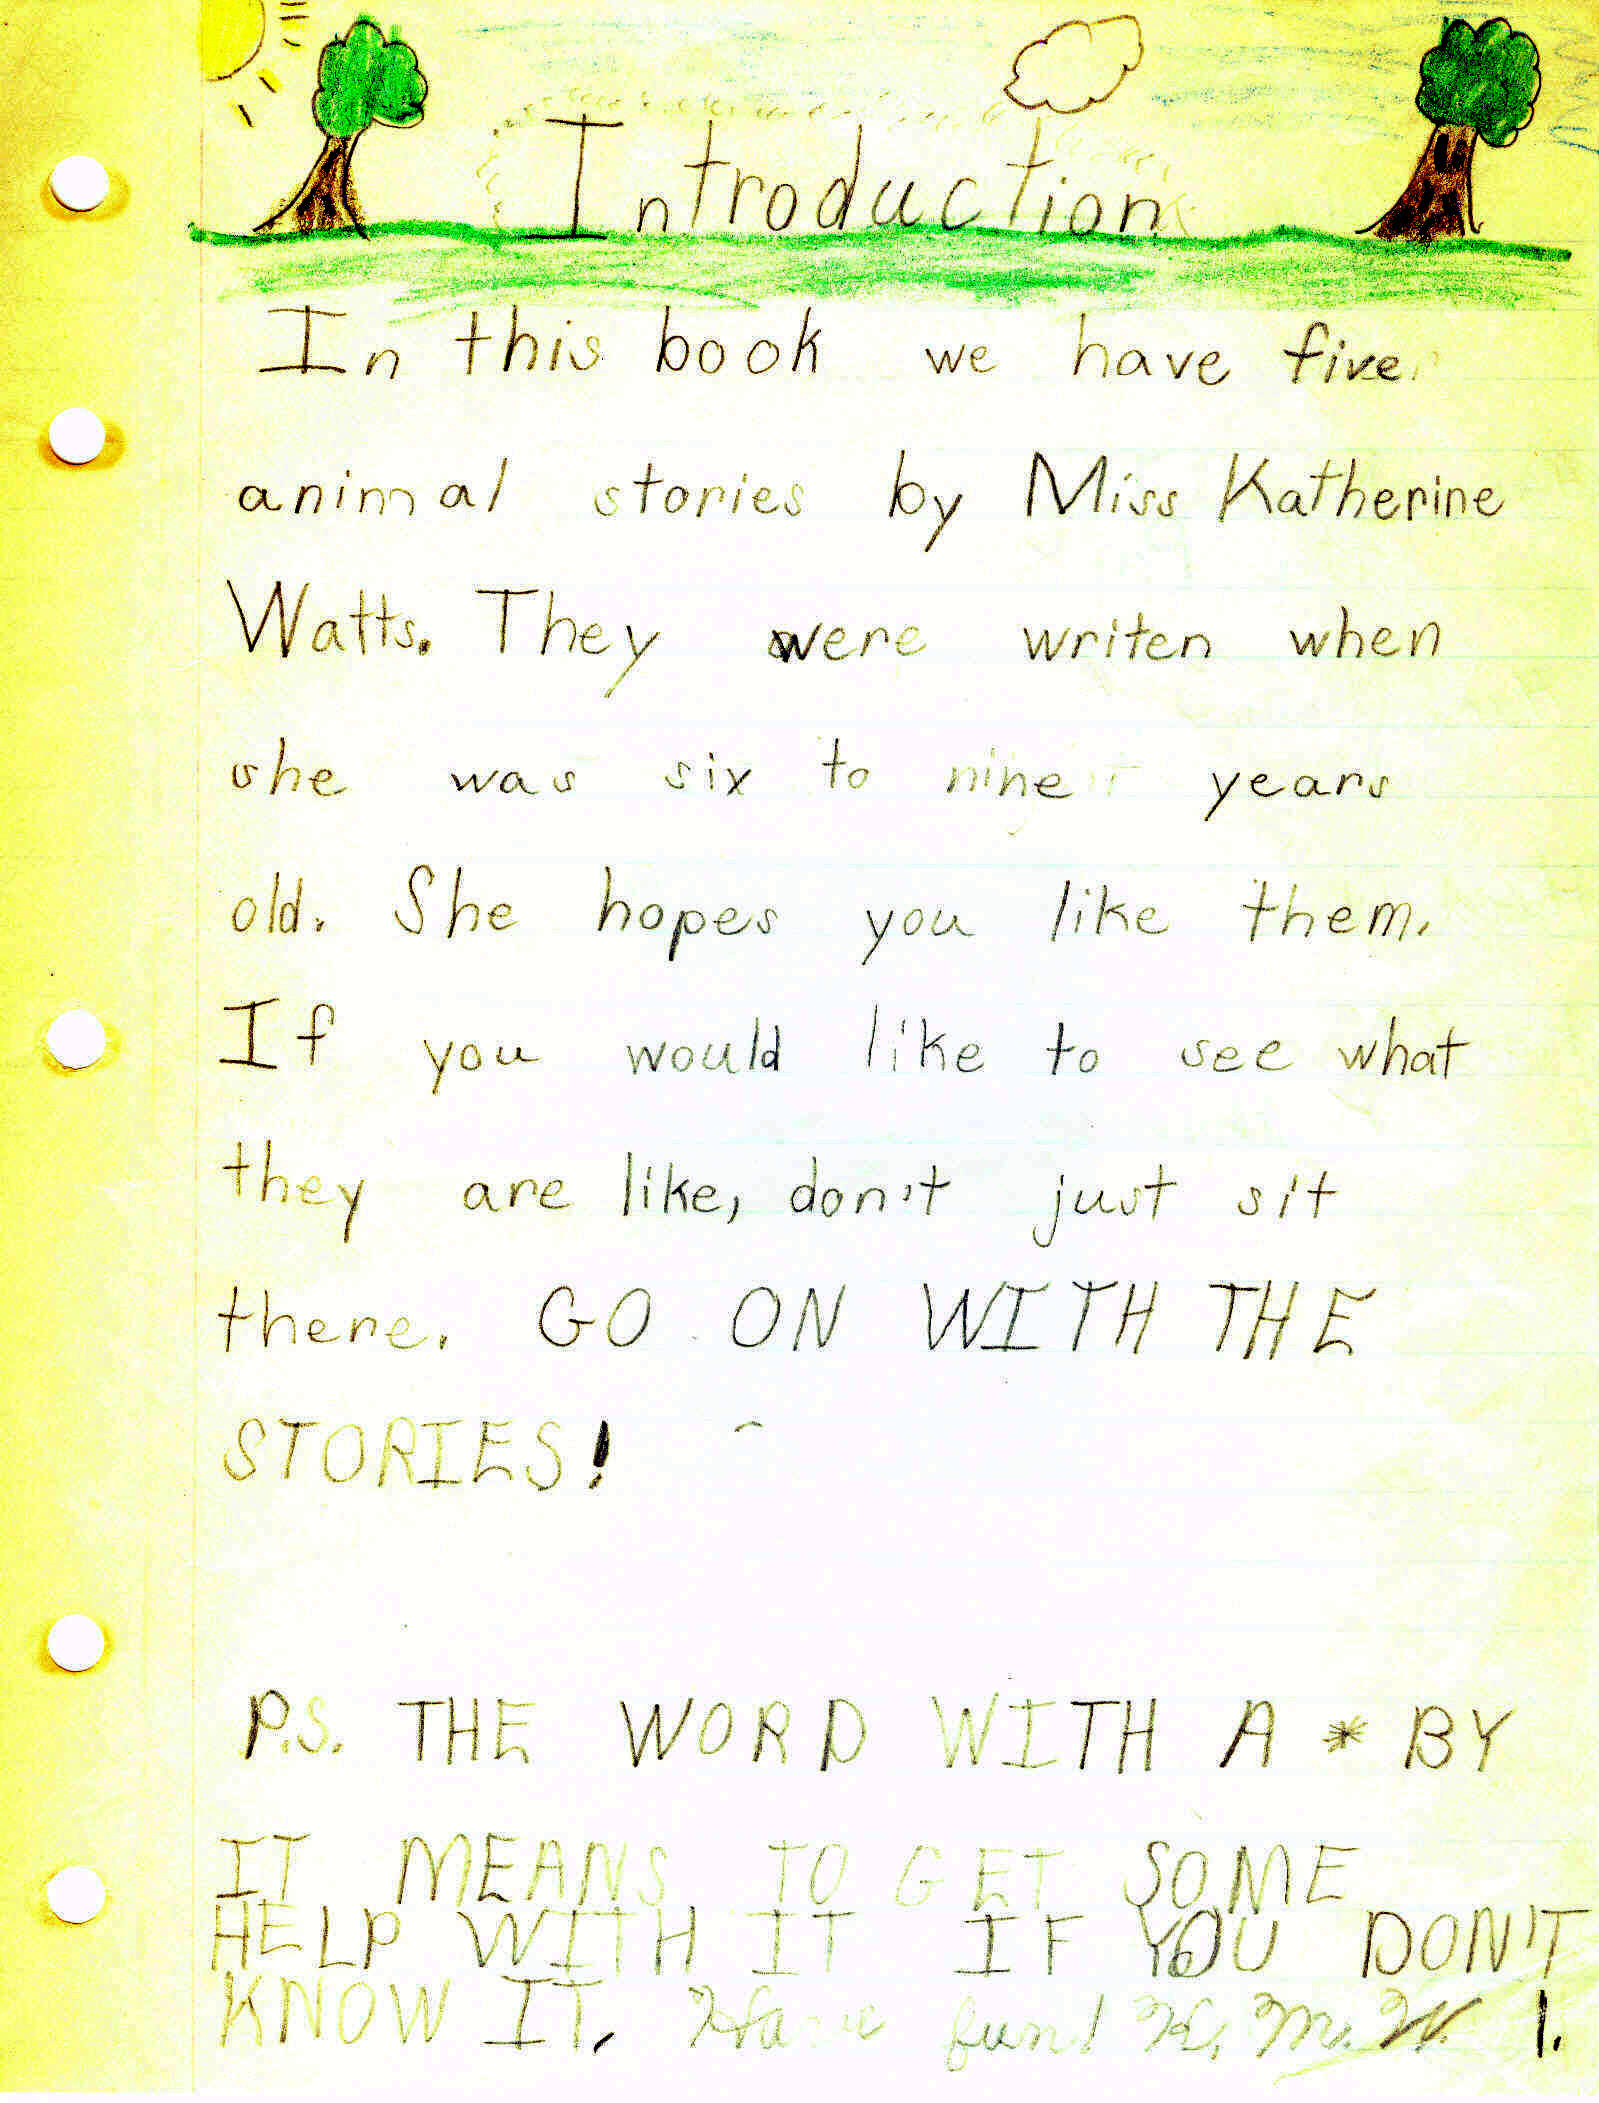 Introduction
In this book we have five
animal stories by Miss Katherine
Watts. They were writen when
she was six to nine years
old. She hopes you like them.
If you would like to see what
they are like, don't just sit
there. GO ON WITH THE
STORIES!
P.S. THE WORD WITH A * BY
IT MEANS TO GET SOME
HELP WITH IT IF YOU DON'T
KNOW IT. Have fun! K. M. W. 1.